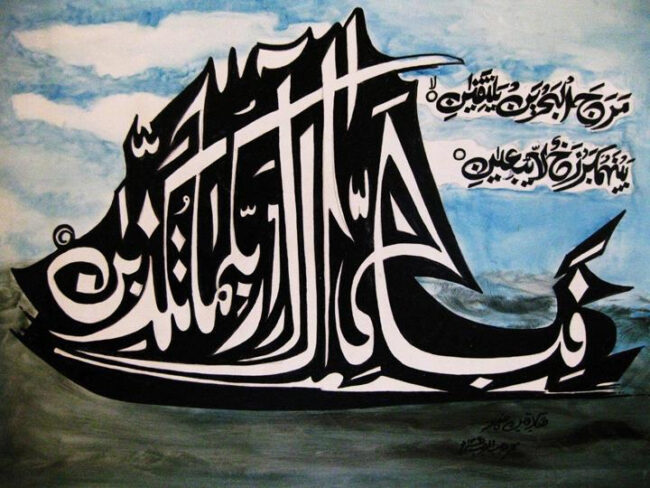 مَرَجَ الْبَحْرَيْنِ يَلْتَقِيٰنِ ۙ
بَيْنَهُمَا بَرْزَخٌ لَّا يَبْغِيٰنِ ۚ
فَبِأَيِّ آلَاءِ رَبِّكُمَا تُكَذِّبٰنِ